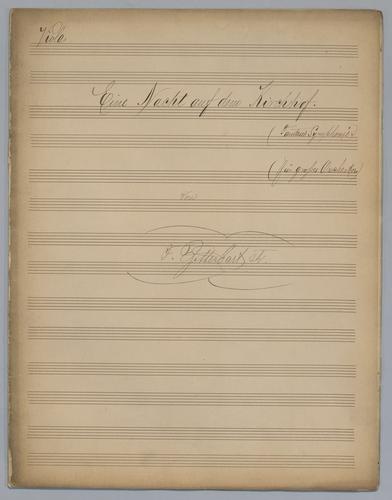 Viola
Eine Nacht auf dem Kirchhof.
(Fantasie Symphonie)
(für großes Orchester)
von
F. Bitterhart